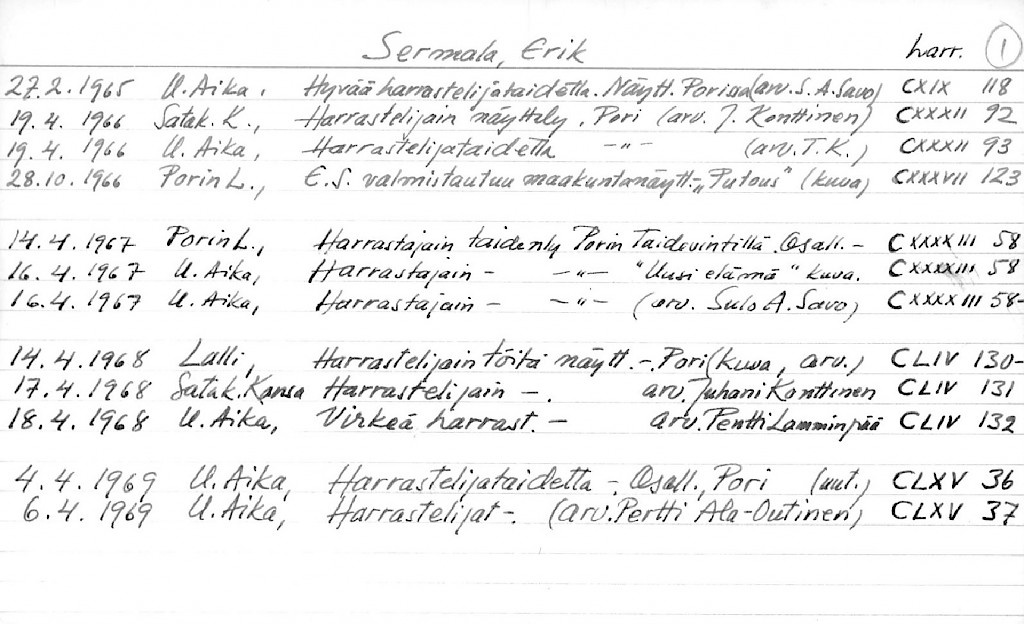 Sermala, Erik harr. 1
27.2.1965 U. Aika. Hyvää harrastelijataidetta. Näytt. Porissa (arv. S. A. Savo) CXIX 118
19.4.1966 Satak. K., Harrastelijain näyttely, Pori (arv. J. Konttinen) CXXXII 92
19.4.1966 U. Aika, Harrastelijataidetta -"- (arv. T.K.) CXXXII 93
28.10.1966 Porin L., E.S. valmistautuu maakuntanäytt.- "Putous" (kuva) CXXXVII 123
14.4.1967 Porin L., Harrastajain taidenly Porin Taidevintillä. Osall. - CXXXXIII 58
16.4.1967 U. Aika, Harrastajain - -"- "Uusi elämä" kuva. CXXXXIII 58
16.4.1967 U. Aika, Harrastajain - -"- (arv. Sulo A. Savo) CXXXXIII 58-
14.4.1968 Lalli, Harrastelijain töitä näytt. - Pori (kuva, arv.) CLIV 130-
17.4.1968 Satak. Kansa Harrastelijain -. arv. Juhani Konttinen CLIV 131
18.4.1968 U. Aika, Virkeä harrast. - arv. Pentti Lamminpää CLIV 132
4.4.1969 U. Aika, Harrastelijataidetta -. Osall., Pori (uut.) CLXV 36
6.4.1969 U. Aika, Harrastelijat -. (arv. Pertti Ala-Outinen) CLXV 37